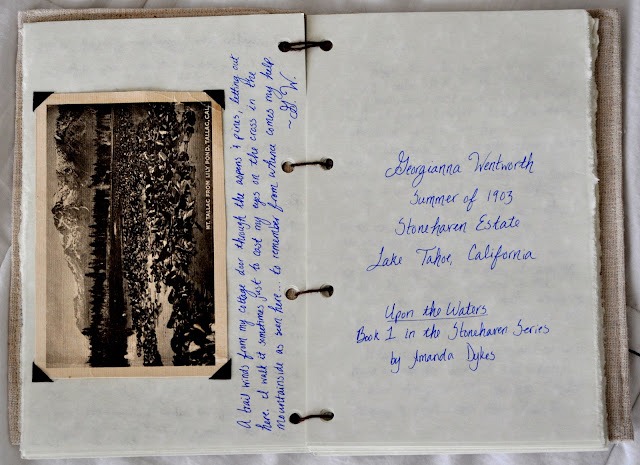 MT. TALLAC FROM LILY POND, TALLAC, CAL.
A trail winds from my cottage door through the aspens & pines, letting out
here. I walk it sometimes just to cast my eyes on the cross in the
mountainside as seen here... to remember from whence comes my help
~G.W.
Georgianna Wentworth
Summer of 1903
Stonehaven Estate
Lake Tahoe, California
Upon the Waters
Book 1 in the Stonehaven Series
by Amanda Dykes